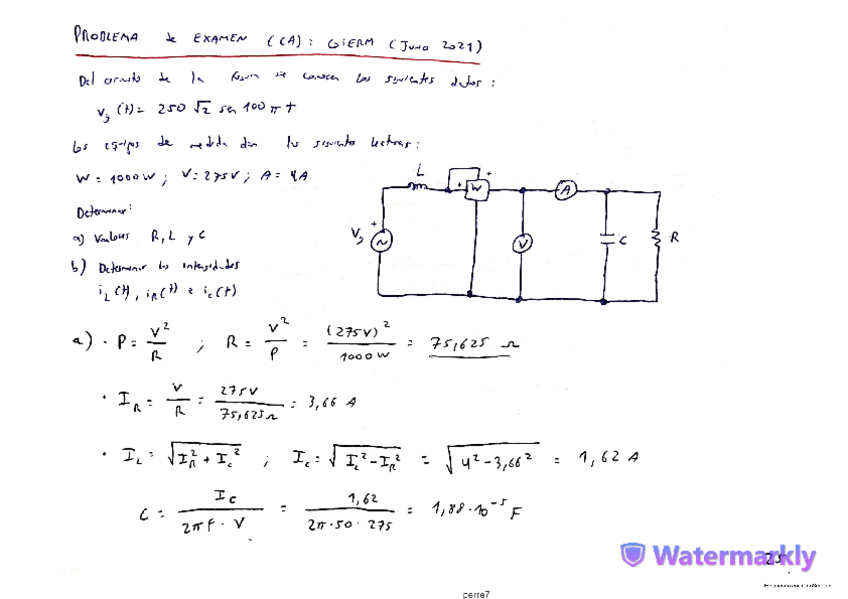 PROBLEMA de EXAMEN (CA): GIERM (Junio 2021)
Del circuito de la figura se conocen los siguientes datos:
Vg (t) = 250 √2 sen 100 π t
Los equipos de medida dan las siguientes lecturas:
W = 1000 W ; V = 275 V ; A = 4A
Determinar:
a) Valores R, L y C
b) Determinar las intensidades
iL (t), iR (t) e ic (t)
L
+ W +
A
+
Vg
~
V
C
R
a) · P = V² / R ; R = V² / P = (275V)² / 1000 W = 75,625 Ω
· I_R = V / R = 275V / 75,625 Ω = 3,66 A
· I_L = √(I_R² + I_c²) ; I_c = √(I_L² - I_R²) = √(4² - 3,66²) = 1,62 A
C = I_c / 2πf · V = 1,62 / 2π · 50 · 275 = 1,88 · 10⁻⁵ F
Watermarkly
25
perra7